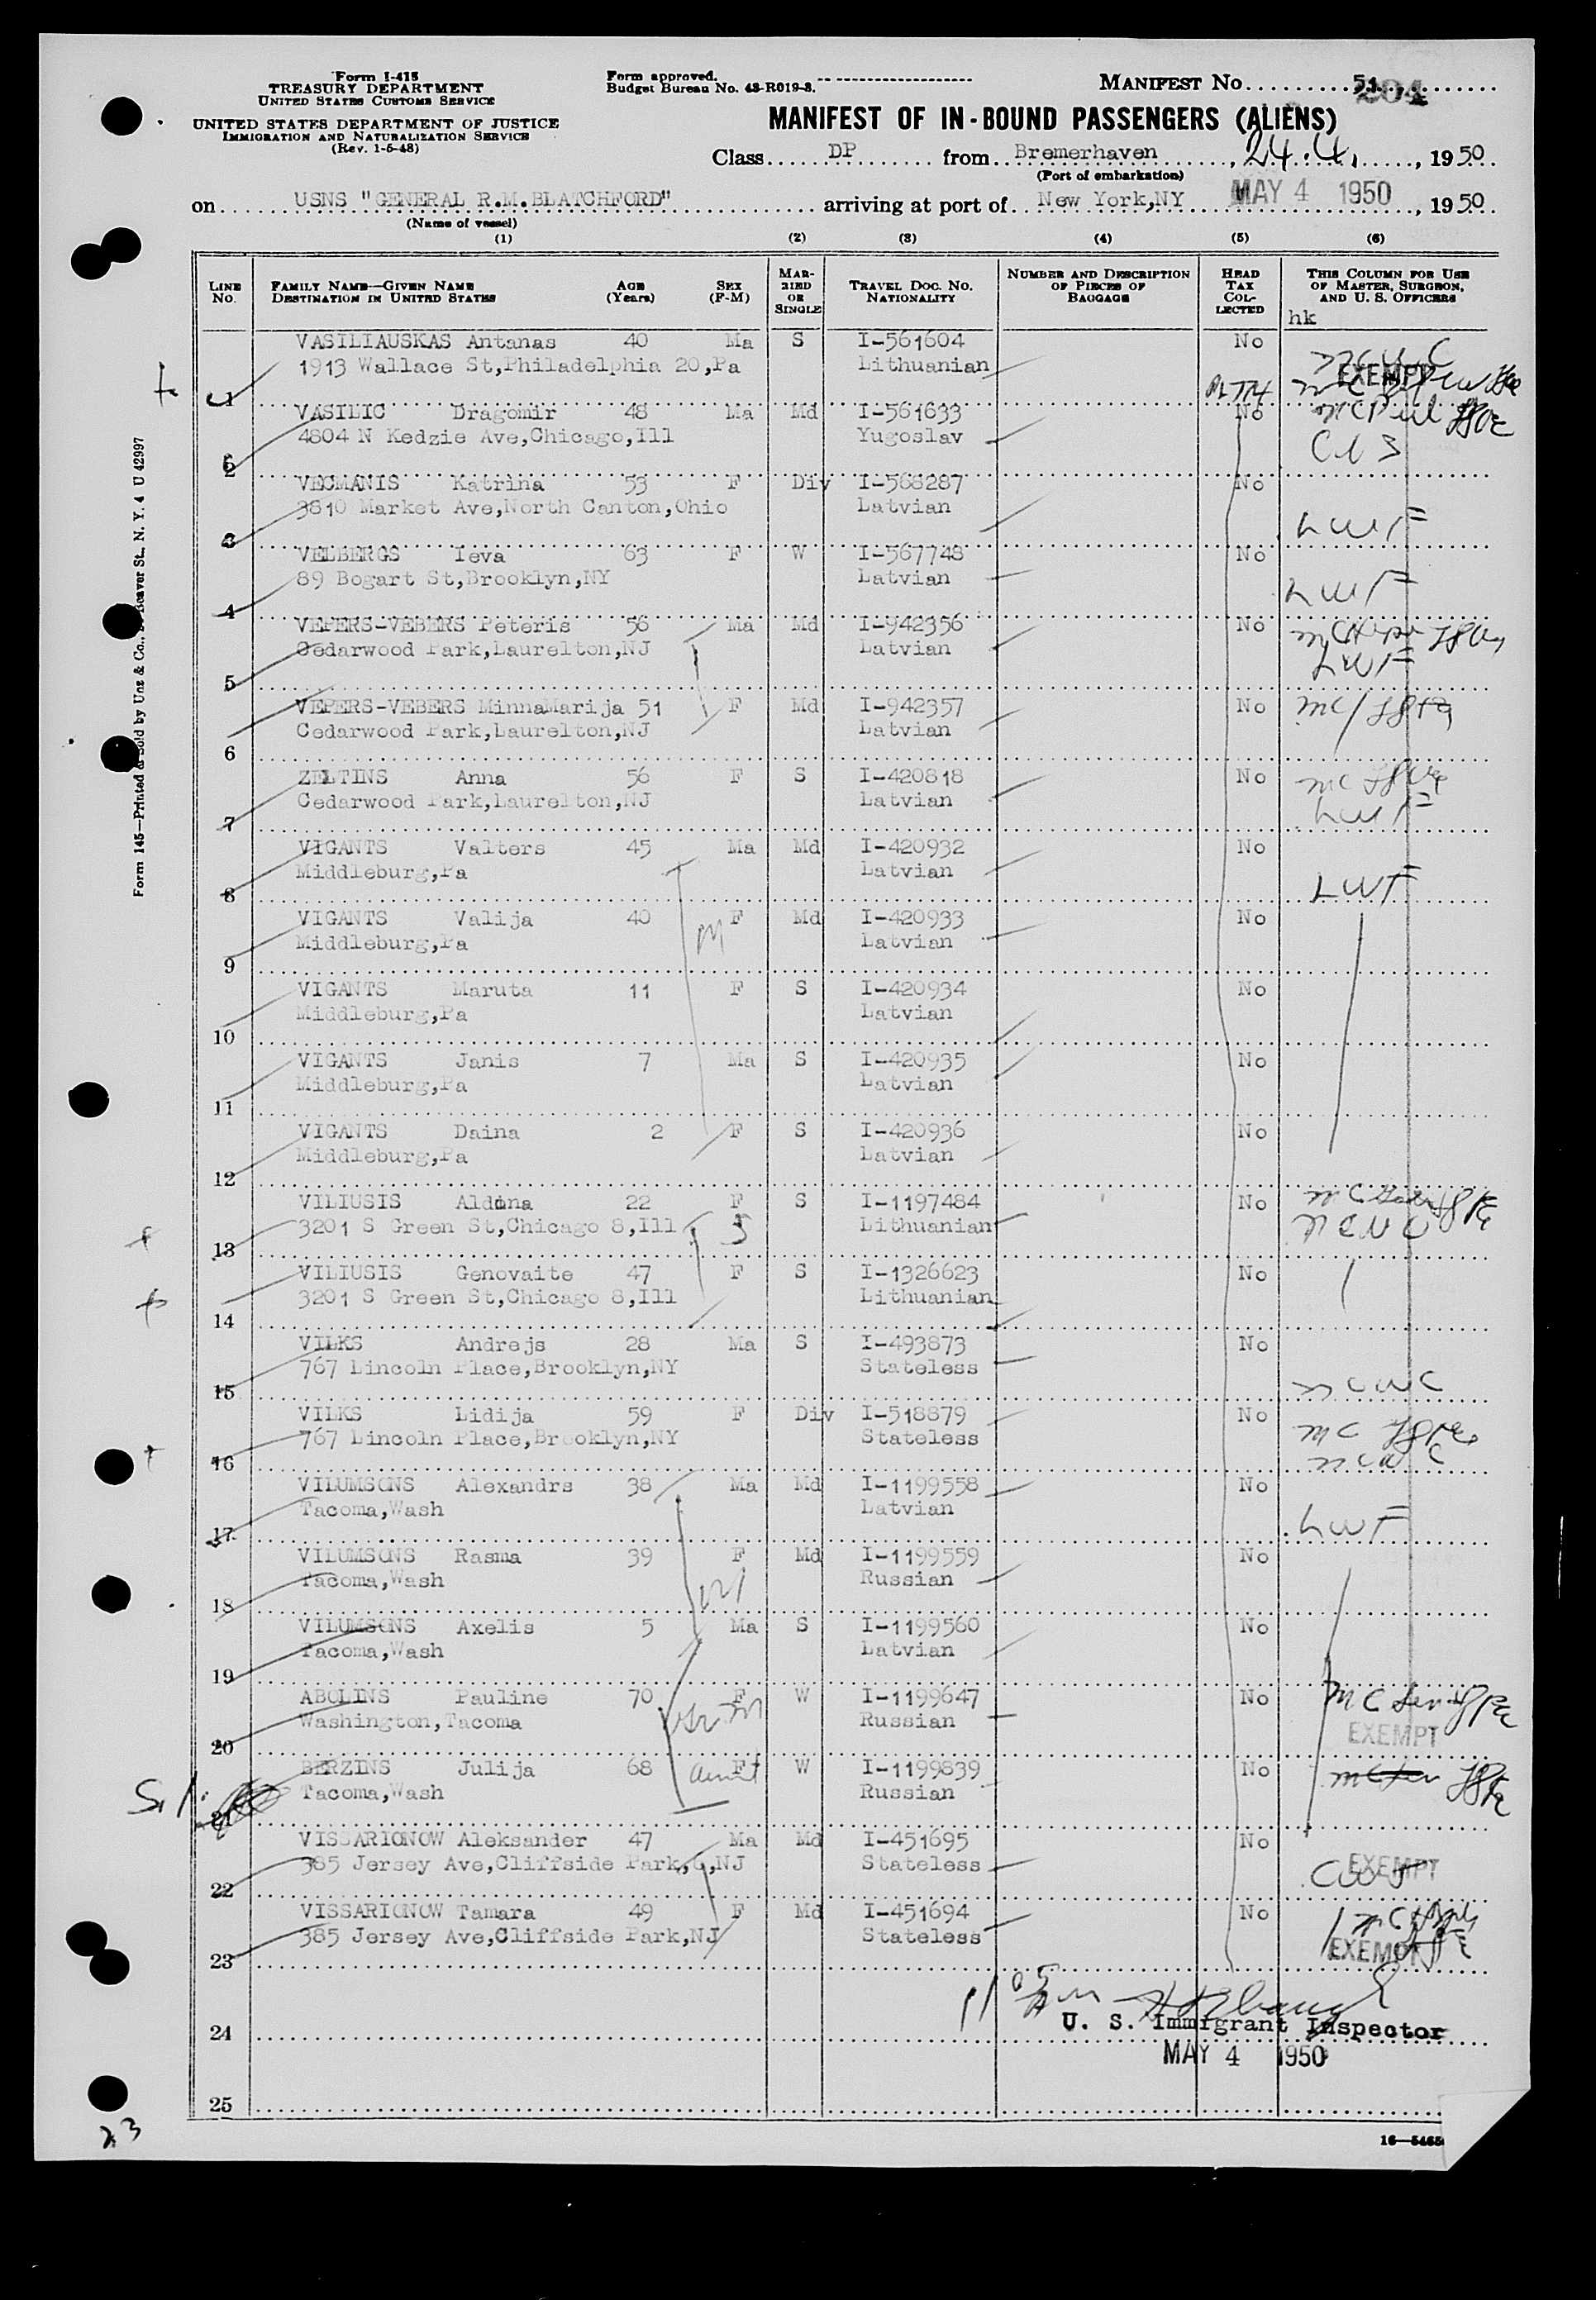 Form I-415
TREASURY DEPARTMENT
UNITED STATES CUSTOMS SERVICE
UNITED STATES DEPARTMENT OF JUSTICE
IMMIGRATION AND NATURALIZATION SERVICE
(Rev. 1-5-48)
Form approved.
Budget Bureau No. 43-R019-3.
MANIFEST No. 51
MANIFEST OF IN-BOUND PASSENGERS (ALIENS)
Class DP from Bremerhaven, 24.4., 1950
(Port of embarkation)
on USNS "GENERAL R.M.BLATCHFORD" arriving at port of New York,NY MAY 4 1950, 1950
(Name of vessel)
(1) (2) (3) (4) (5) (6)
LINE No. FAMILY NAME—GIVEN NAME DESTINATION IN UNITED STATES AGE (Years) SEX (F-M) MARRIED OR SINGLE TRAVEL DOC. NO. NATIONALITY NUMBER AND DESCRIPTION OF PIECES OF BAGGAGE HEAD TAX COLLECTED THIS COLUMN FOR USE OF MASTER, SURGEON, AND U. S. OFFICERS
hk
VASILIAUSKAS Antanas 40 Ma S I-561604 No
1 1913 Wallace St,Philadelphia 20,Pa Lithuanian EXEMPT
VASILIC Dragomir 48 Ma Md I-561633 No
2 4804 N Kedzie Ave,Chicago,Ill Yugoslav
VECMANIS Katrina 53 F Div I-568287 No
3 3810 Market Ave,North Canton,Ohio Latvian LWF
VELBERGS Ieva 63 F W I-567748 No
4 89 Bogart St,Brooklyn,NY Latvian LWF
VEPERS-VEBERS Peteris 56 Ma Md I-942356 No
5 Cedarwood Park,Laurelton,NJ Latvian LWF
VEPERS-VEBERS MinnaMarija 51 F Md I-942357 No
6 Cedarwood Park,Laurelton,NJ Latvian
ZELTINS Anna 56 F S I-420818 No
7 Cedarwood Park,Laurelton,NJ Latvian LWF
VIGANTS Valters 45 Ma Md I-420932 No
8 Middleburg,Pa Latvian LWF
VIGANTS Valija 40 F Md I-420933 No
9 Middleburg,Pa Latvian
VIGANTS Maruta 11 F S I-420934 No
10 Middleburg,Pa Latvian
VIGANTS Janis 7 Ma S I-420935 No
11 Middleburg,Pa Latvian
VIGANTS Daina 2 F S I-420936 No
12 Middleburg,Pa Latvian
VILIUSIS Aldona 22 F S I-1197484 No
13 3201 S Green St,Chicago 8,Ill Lithuanian
VILIUSIS Genovaite 47 F S I-1326623 No
14 3201 S Green St,Chicago 8,Ill Lithuanian
VILKS Andrejs 28 Ma S I-493873 No
15 767 Lincoln Place,Brooklyn,NY Stateless
VILKS Lidija 59 F Div I-518879 No
16 767 Lincoln Place,Brooklyn,NY Stateless
VILUMSONS Alexandrs 38 Ma Md I-1199558 No
17 Tacoma,Wash Latvian LWF
VILUMSONS Rasma 39 F Md I-1199559 No
18 Tacoma,Wash Russian
VILUMSONS Axelis 5 Ma S I-1199560 No
19 Tacoma,Wash Latvian
ABOLINS Pauline 70 F W I-1199647 No
20 Washington,Tacoma Russian EXEMPT
BERZINS Julija 68 F W I-1199839 No
21 Tacoma,Wash Russian
VISSARIONOW Aleksander 47 Ma Md I-451695 No
22 385 Jersey Ave,Cliffside Park,NJ Stateless EXEMPT
VISSARIONOW Tamara 49 F Md I-451694 No
23 385 Jersey Ave,Cliffside Park,NJ Stateless EXEMPT
24 U. S. Immigrant Inspector
MAY 4 1950
25
23
Form 145—Printed & Sold by Unz & Co., Beaver St., N. Y. 4 U 42997